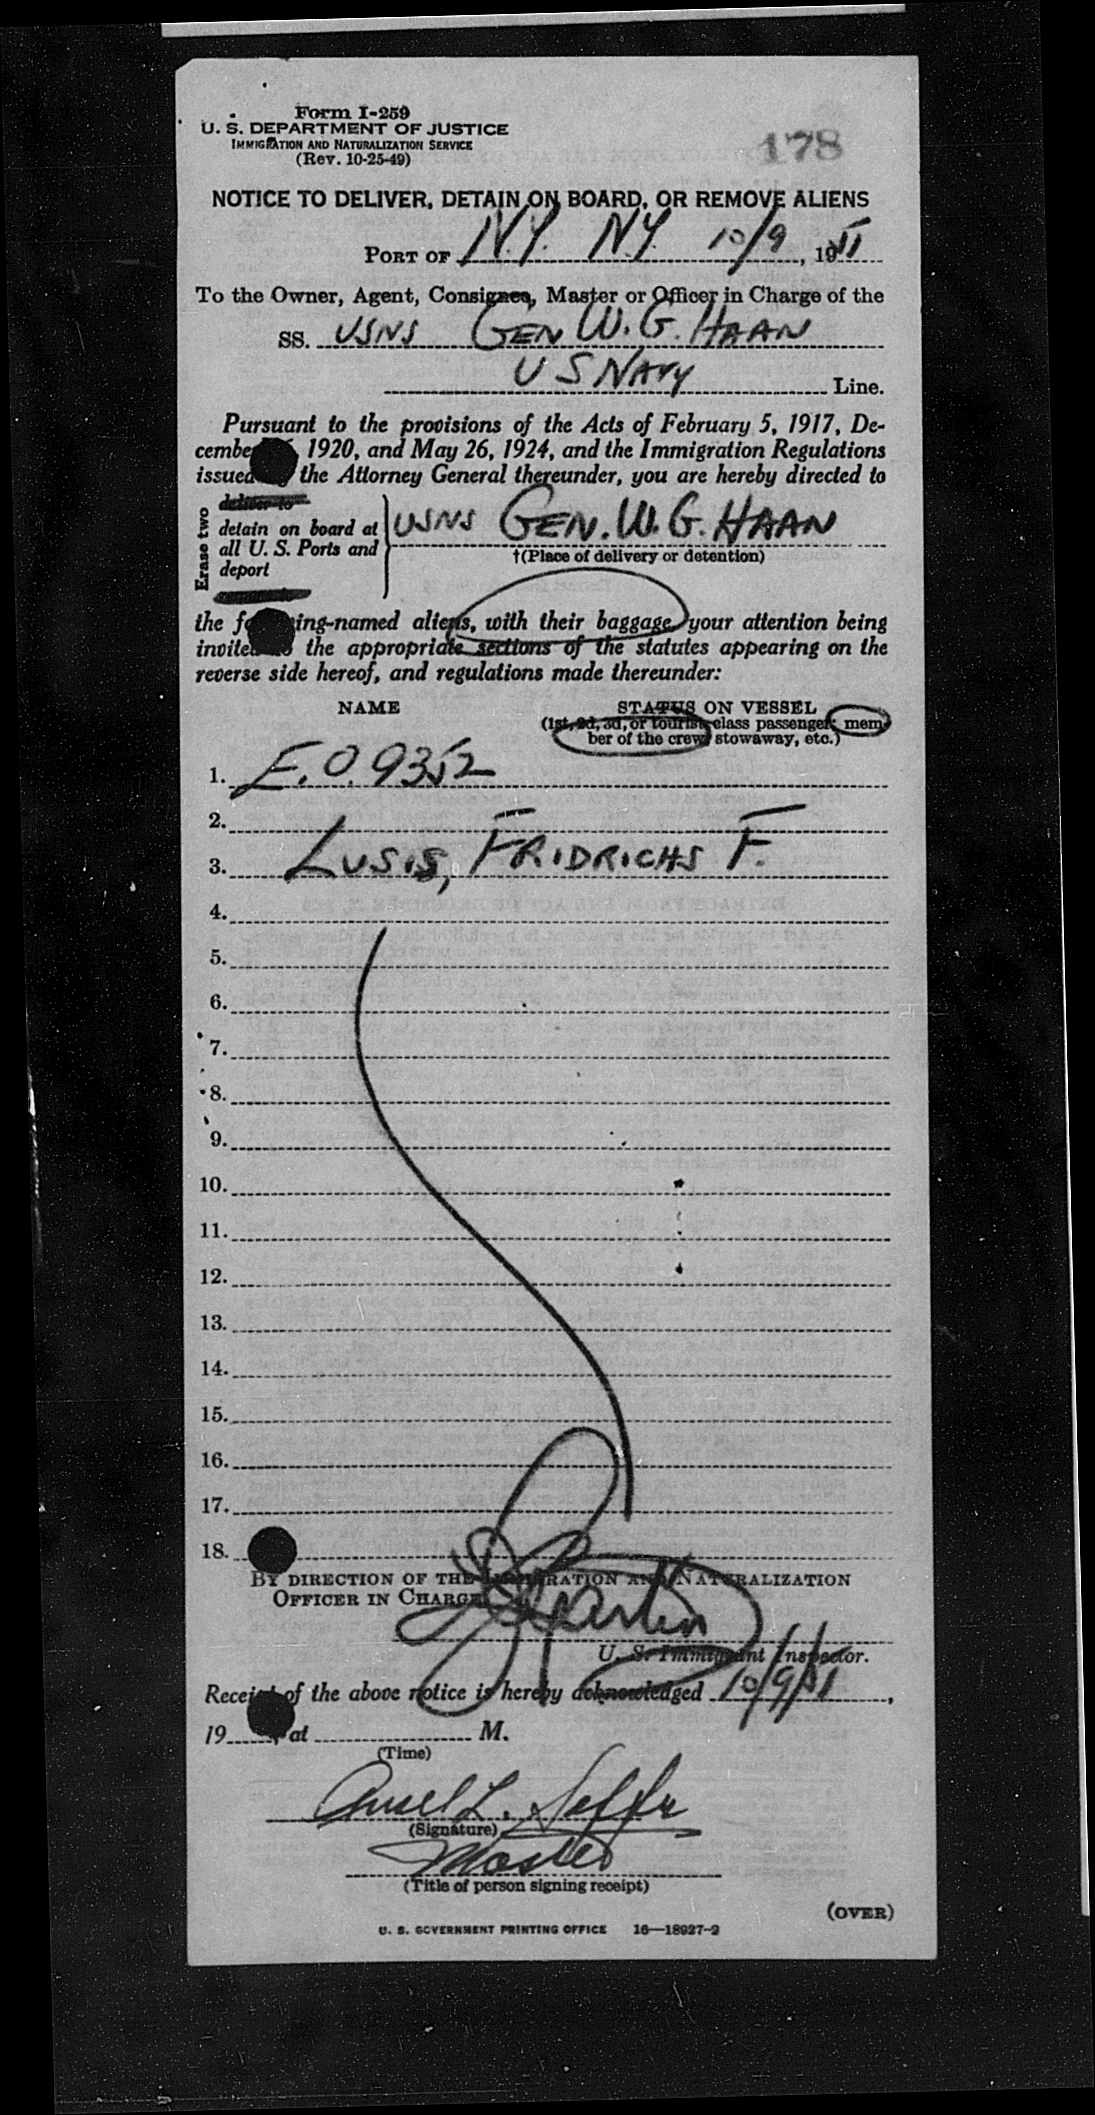 Form I-259
U. S. DEPARTMENT OF JUSTICE
IMMIGRATION AND NATURALIZATION SERVICE
(Rev. 10-25-49)
178
NOTICE TO DELIVER, DETAIN ON BOARD, OR REMOVE ALIENS
PORT OF N.Y. N.Y. 10/9, 1951
To the Owner, Agent, Consignee, Master or Officer in Charge of the
SS. USNS GEN W. G. HAAN
U S NAVY Line.
Pursuant to the provisions of the Acts of February 5, 1917, De-
cember 1920, and May 26, 1924, and the Immigration Regulations
issued the Attorney General thereunder, you are hereby directed to
Erase two
deliver to
detain on board at
all U. S. Ports and
deport
USNS GEN. W. G. HAAN
†(Place of delivery or detention)
the following-named aliens, with their baggage, your attention being
invited to the appropriate sections of the statutes appearing on the
reverse side hereof, and regulations made thereunder:
NAME STATUS ON VESSEL
(1st, 2d, 3d, or tourist class passenger; mem-
ber of the crew, stowaway, etc.)
1. E.O. 9352
2.
3. LUSIS, FRIDRICHS F.
4.
5.
6.
7.
8.
9.
10.
11.
12.
13.
14.
15.
16.
17.
18.
BY DIRECTION OF THE IMMIGRATION AND NATURALIZATION
OFFICER IN CHARGE
U. S. Immigrant Inspector.
Receipt of the above notice is hereby acknowledged 10/9/51,
19 , at M.
(Time)
(Signature)
Master
(Title of person signing receipt)
(OVER)
U. S. GOVERNMENT PRINTING OFFICE 16—18927-2